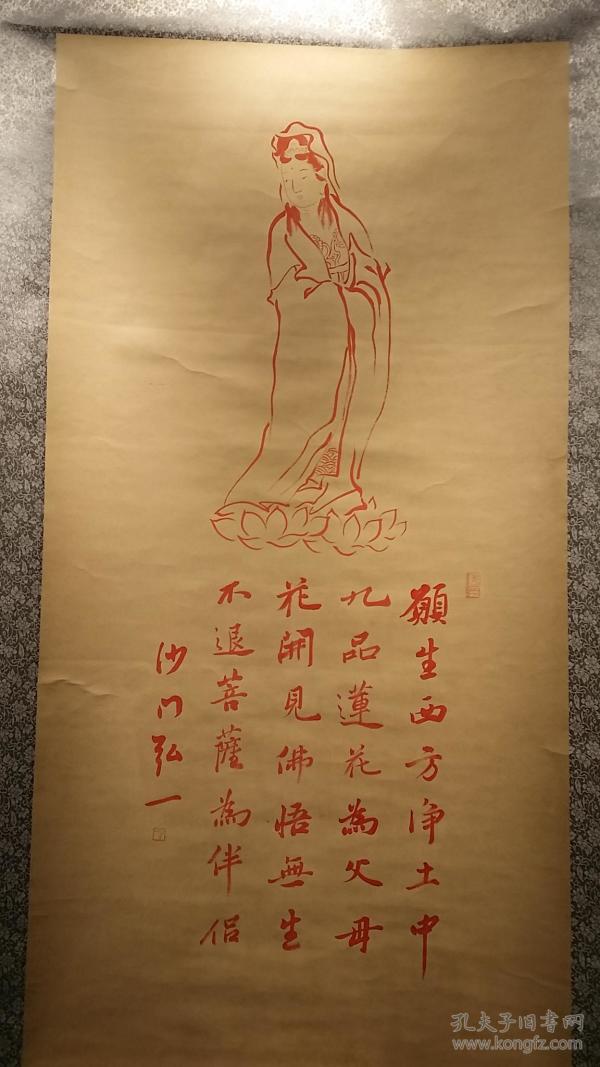 願生西方净土中
九品蓮花為父母
花開見佛悟無生
不退菩薩為伴侣
沙门弘一
孔夫子旧书网
www.kongfz.com